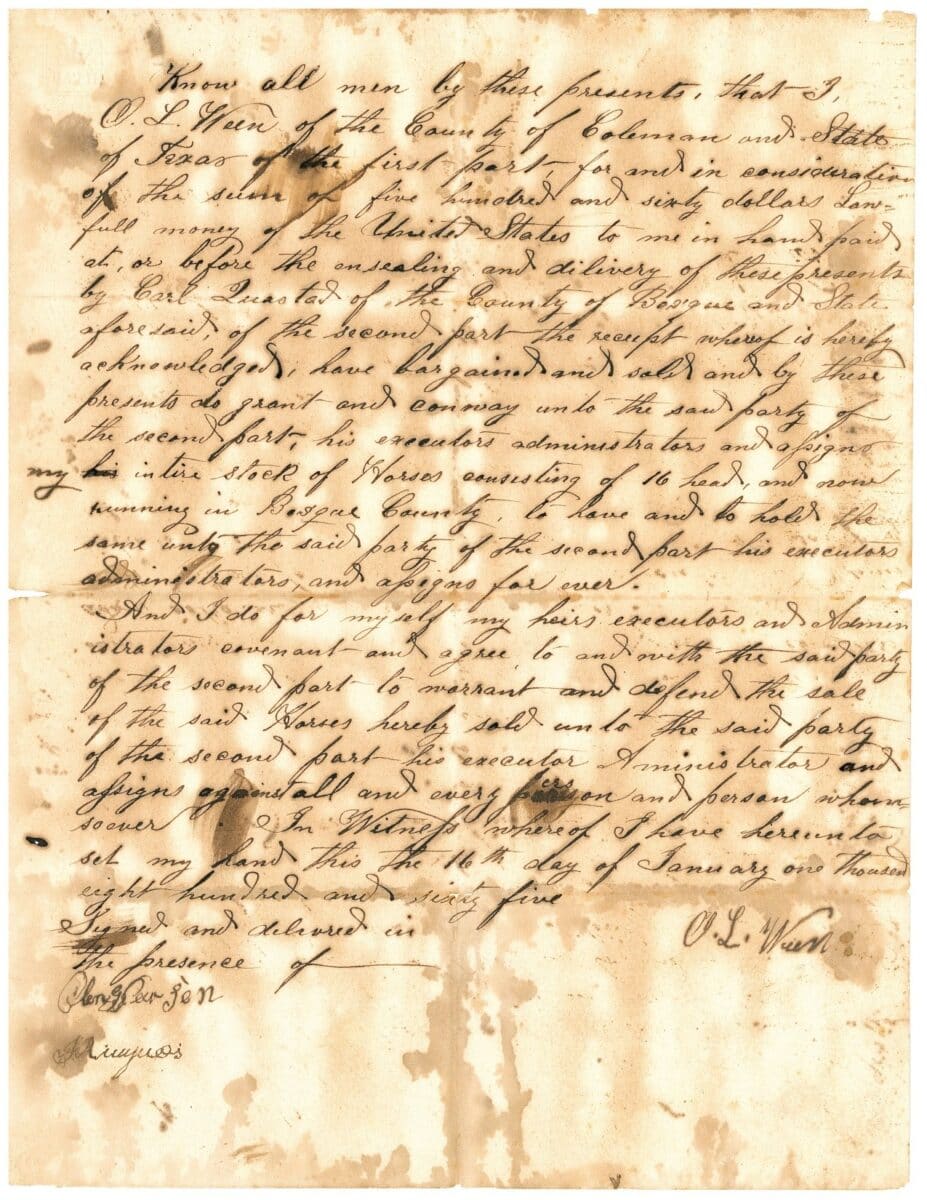 Know all men by these presents, that I,
O. L. Ween of the County of Coleman and State
of Texas of the first part, for and in consideration
of the sum of five hundred and sixty dollars Law-
full money of the United States to me in hand paid
at, or before the ensealing and dilivery of these presents
by Carl Quastad of the County of Bosque and State
aforesaid, of the second part the receipt whereof is hereby
acknowledged, have bargained and sold and by these
presents do grant and conway unto the said party of
the second part, his executors administrators and assigns
my his intire stock of Horses consisting of 16 head, and now
running in Bosque County, to have and to hold the
same unto the said party of the second part his executors
administrators, and assigns for ever.
And I do for myself my heirs executors and Admin
istrators covenant and agree to and with the said party
of the second part to warrant and defend the sale
of the said Horses hereby sold unto the said party
of the second part his executor Aministrator and
assigns against all and every person and person whom
soever In Witness whereof I have hereunto
set my hand this the 16th day of January one thousand
eight hundred and sixty five
Signed and delivred in
the presence of
O. L. Ween